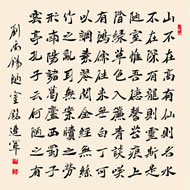 山不在高有仙則名水
不在深有龍則靈斯是
陋室惟吾德馨苔痕上
階綠草色入簾青談笑
有鴻儒往來無白丁可
以調素琴閱金經無絲
竹之亂耳無案牘之勞
形南陽諸葛廬西蜀子
雲亭孔子云何陋之有
劉禹錫陋室銘